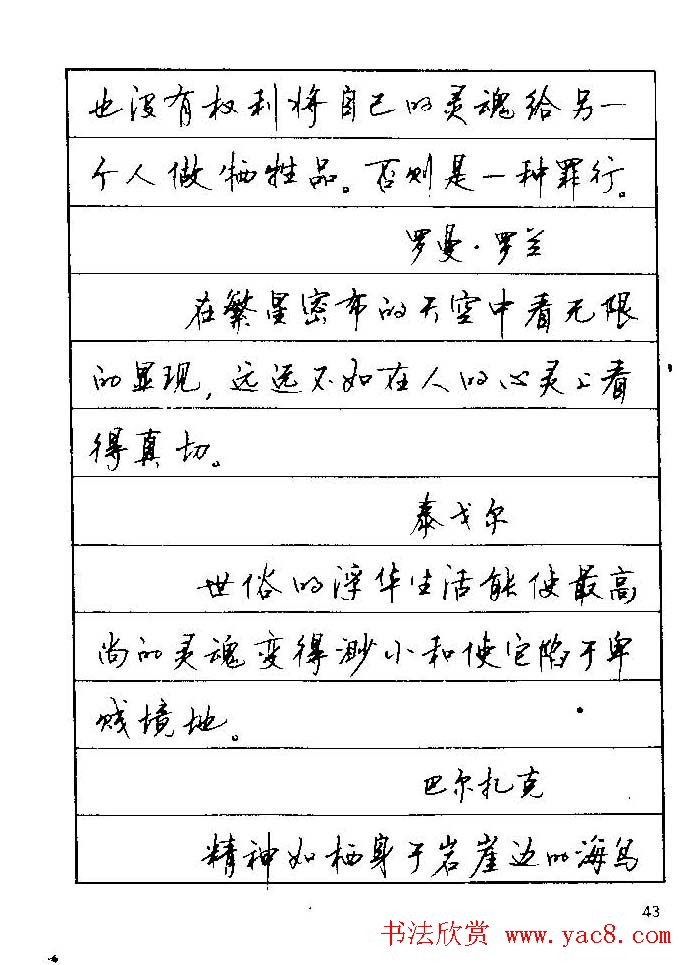 也没有权利将自己的灵魂给另一
个人做牺牲品。否则是一种罪行。
罗曼·罗兰
在繁星密布的天空中看无限
的显现，远远不如在人的心灵上看
得真切。
泰戈尔
世俗的浮华生活能使最高
尚的灵魂变得渺小和使它陷于卑
贱境地。
巴尔扎克
精神如栖身于岩崖边的海鸟
43
书法欣赏 www.yac8.com